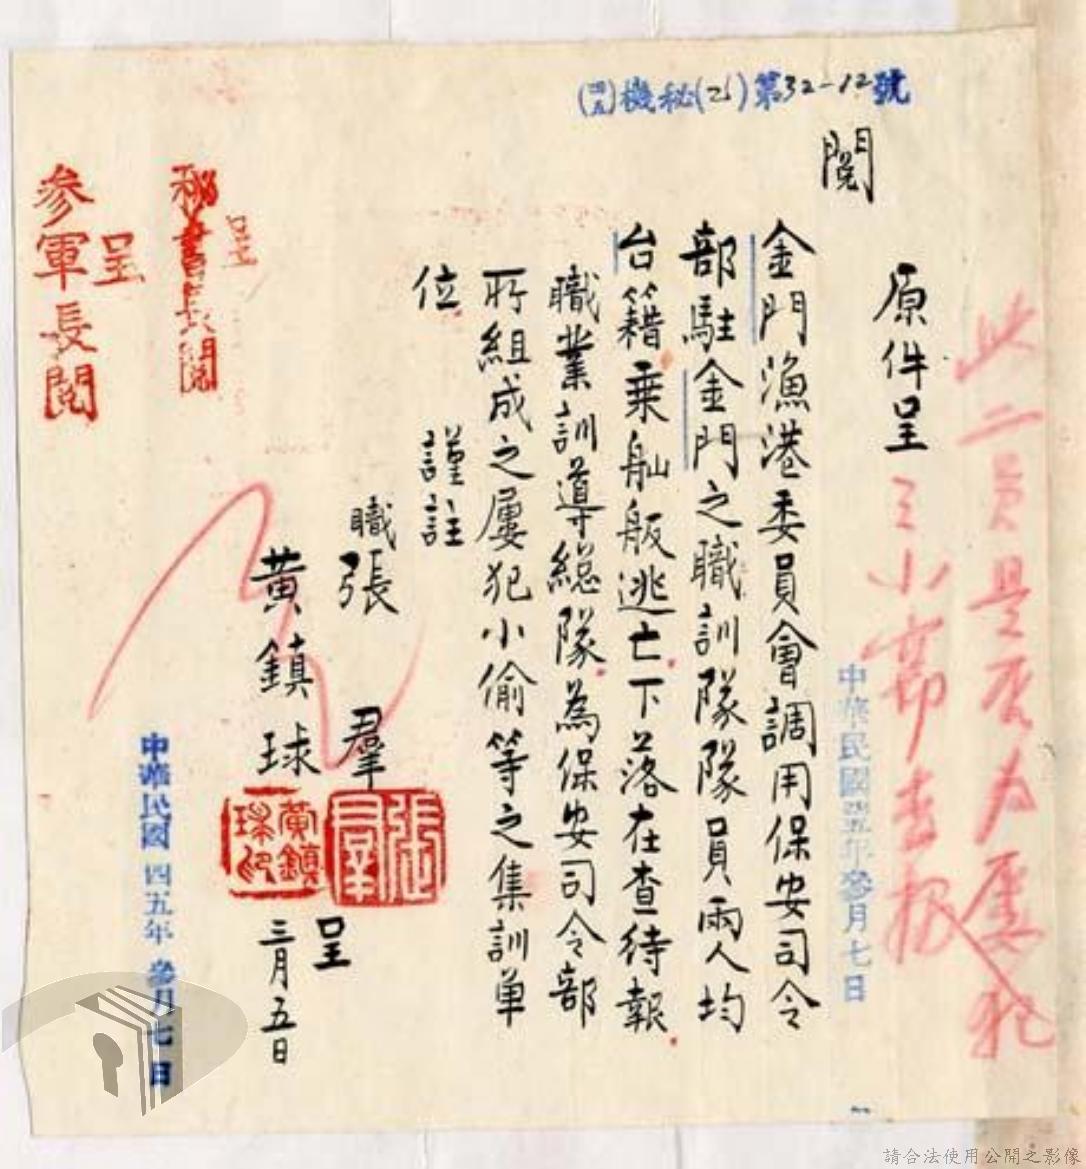 (四五)機秘(乙)第32-12號
此二員是否為屢犯
之小偷查報
中華民國四五年參月七日
閱
原件呈
金門漁港委員會調用保安司令
部駐金門之職訓隊隊員兩人均
台籍乘舢舨逃亡下落在查待報
職業訓導總隊為保安司令部
所組成之屢犯小偷等之集訓單
位
謹註
職張羣
黃鎮球
呈
三月五日
張羣
黃鎮球印
呈
秘書長閱
呈
參軍長閱
中華民國四五年參月七日
請合法使用公開之影像